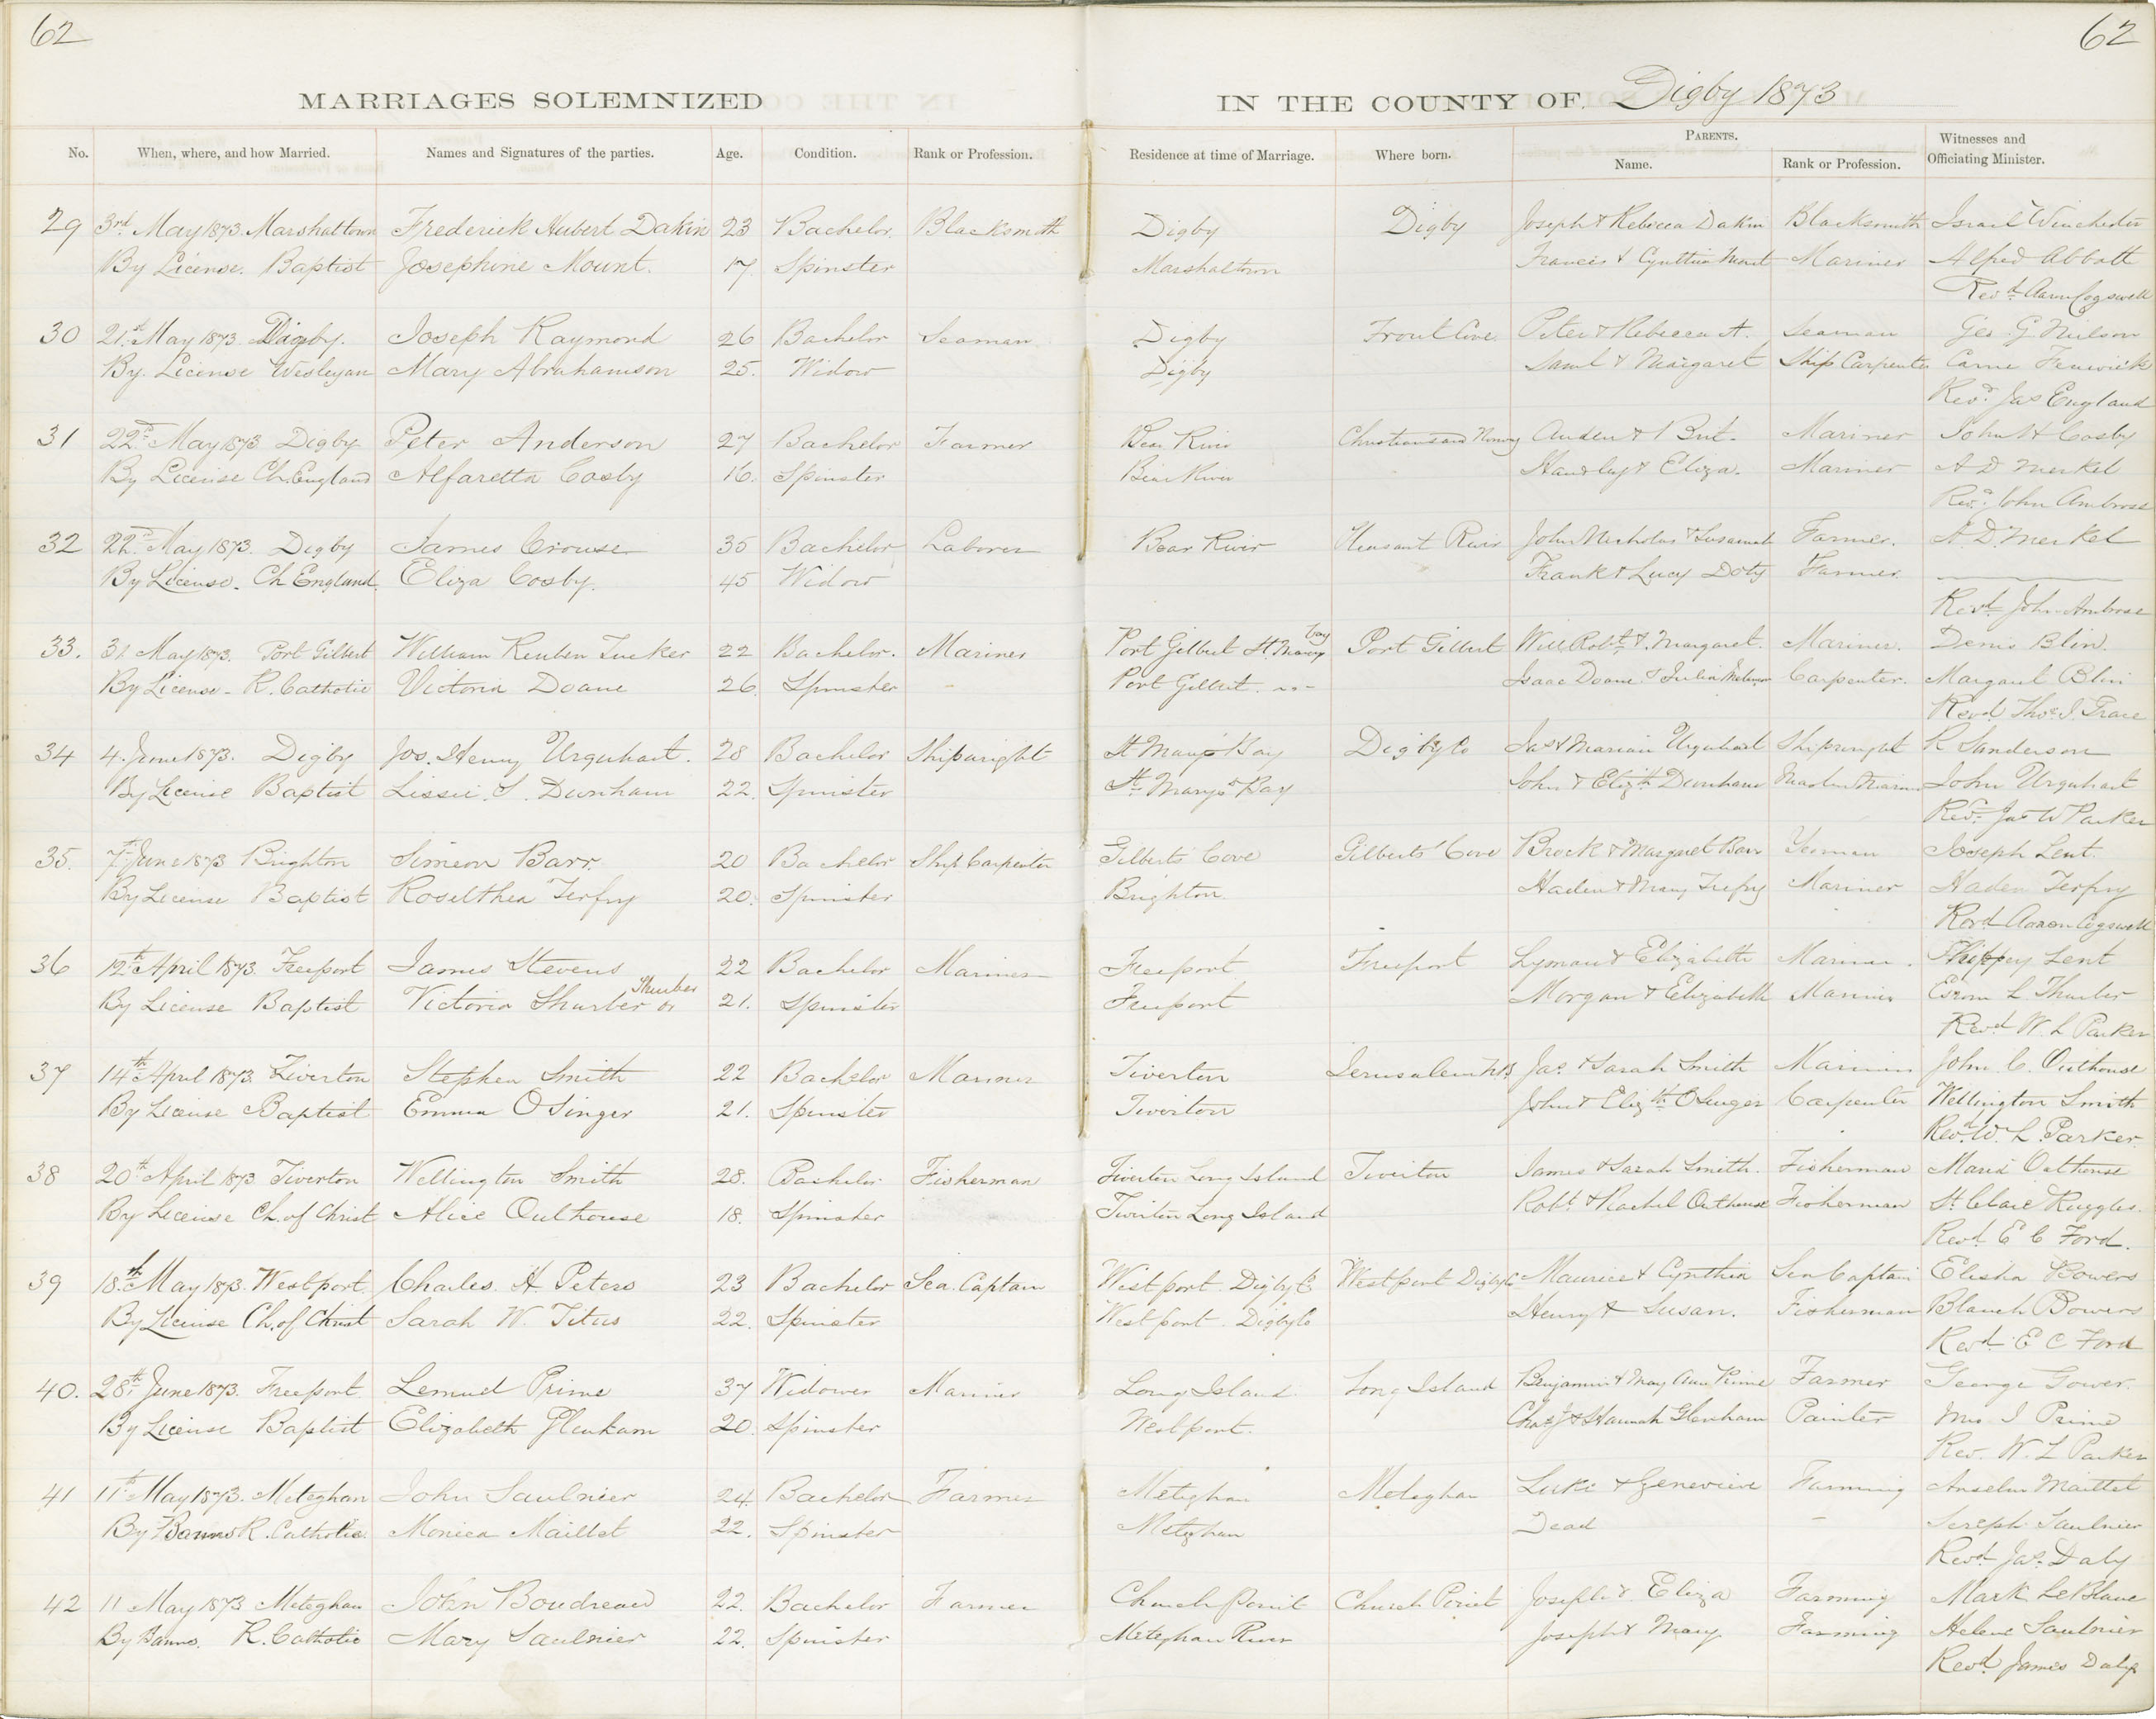 62
62
MARRIAGES SOLEMNIZED
IN THE COUNTY OF Digby 1873
No. When, where, and how Married. Names and Signatures of the parties. Age. Condition. Rank or Profession. Residence at time of Marriage. Where born. PARENTS. Name. Rank or Profession. Witnesses and Officiating Minister.
29 3rd May 1873. Marshaltown Frederick Hubert Dakin 23 Bachelor. Blacksmith Digby Digby Joseph & Rebecca Dakin Blacksmith Israel Winchester
By License. Baptist Josephine Mount. 17 Spinster Marshaltown Francis & Cynthia Mount Mariner Alfred Abbott
Revd Aaron Cogswell
30 21st May 1873. Digby. Joseph Raymond 26 Bachelor Seaman Digby Trout Cove Peter & Rebecca A. Seaman Geo G Nelson
By License Wesleyan Mary Abrahamson 25. Widow Digby Saml & Margaret Ship Carpenter Fenwick
Revd. Jas England
31 22nd May 1873 Digby Peter Anderson 27 Bachelor Farmer Bear River Christiansand Norway Mariner John H Cosby
By License Ch. England Alfaretta Cosby 16. Spinster Bear River & Eliza. Mariner A D Merkel
Revd. John Ambrose
32 22nd May 1873. Digby James Crouse 35 Bachelor Laborer Bear River Pleasant River John Nicholas & Susannah Farmer. A. D. Merkel
By License. Ch England. Eliza Cosby. 45 Widow Frank & Lucy Doty Farmer
Revd John Ambrose
33. 31 May 1873. Port Gilbert William Reuben Tucker 22 Bachelor. Mariner Port Gilbert St. Marys bay Port Gilbert Will Robt & Margaret. Mariner. Denis Blin.
By License - R. Catholic Victoria Doane 26. Spinster - Port Gilbert Isaac Doane & Julia Carpenter. Margaret Blin
Revd. Thos J. Grace
34 4. June 1873. Digby Jos. Henry Urquhart. 28 Bachelor Shipwright St Mary's Bay Digby Co Jas & Marian Urquhart Shipwright R Sanderson
By License Baptist Lissie. S. Dunham 22. Spinster St Mary's Bay John & Elizth Dunham Master Mariner John Urquhart
Revd. Jas W Parker
35. 7th June 1873 Brighton Simeon Barr. 20 Bachelor Ship Carpenter Gilberts Cove Gilberts' Cove Brock & Margaret Barr Yeoman Joseph Lent.
By License Baptist Roselthea Terfry 20. Spinster Brighton. Haden & Mary Trefry Mariner Haden Terfry
Revd Aaron Cogswell
36 12th April 1873. Freeport James Stevens 22 Bachelor Mariner Freeport Freeport Lyman & Elizabeth Mariner. Lent
By License Baptist Victoria Shurber or Thurber 21. Spinster Freeport Morgan & Elizabeth Mariner Esrom L. Thurber
Revd W. L Parker
37 14th April 1873. Tiverton Stephen Smith 22 Bachelor Mariner Tiverton Jerusalem N.B. Jas. & Sarah Smith Mariner John C. Outhouse
By License Baptist Emma OSinger 21. Spinster Tiverton John & Elizth OSinger Carpenter Wellington Smith
Revd. W. L. Parker.
38 20th April 1873 Tiverton Wellington Smith 28. Bachelor Fisherman Tiverton Long Island Tiverton James & Sarah Smith. Fisherman Maria Outhouse
By License Ch. of Christ Alice Outhouse 18. Spinster Tiverton Long Island Robt & Rachel Outhouse Fisherman St. Clare Ruggles.
Revd. E C Ford.
39 18th May 1873. Westport. Charles. A Peters 23 Bachelor Sea. Captain Westport. Digby Co Westport Digby Co Maurice & Cynthia Sea Captain Elisha Bowers
By License Ch. of Christ Sarah W. Titus 22. Spinster Westport. Digby Co Henry & Susan. Fisherman Blanch Bowers
Revd. E C Ford
40. 28th June 1873. Freeport. Lemuel Prime 37 Widower Mariner Long Island. Long Island Benjamin & Mary Ann Prime Farmer George Gower.
By License Baptist Elizabeth Glenham 20. Spinster Westport. Chas J & Hannah Glenham Painter Mrs I Prime
Rev. W. L Parker
41 11th May 1873. Meteghan John Saulnier 24. Bachelor Farmer Meteghan Meteghan Luke & Genevieve Farming Anselm Maillet
By Banns R. Catholic. Monica Maillet 22. Spinster Meteghan Dead - Joseph Saulnier
Revd. Jas. Daly
42 11 May 1873 Meteghan John Boudreau 22. Bachelor Farmer Church Point Church Point Joseph & Eliza Farming Mark LeBlanc
By Banns. R. Catholic Mary Saulnier 22. Spinster Meteghan River Joseph & Mary Farming Helene Saulnier
Revd. James Daly